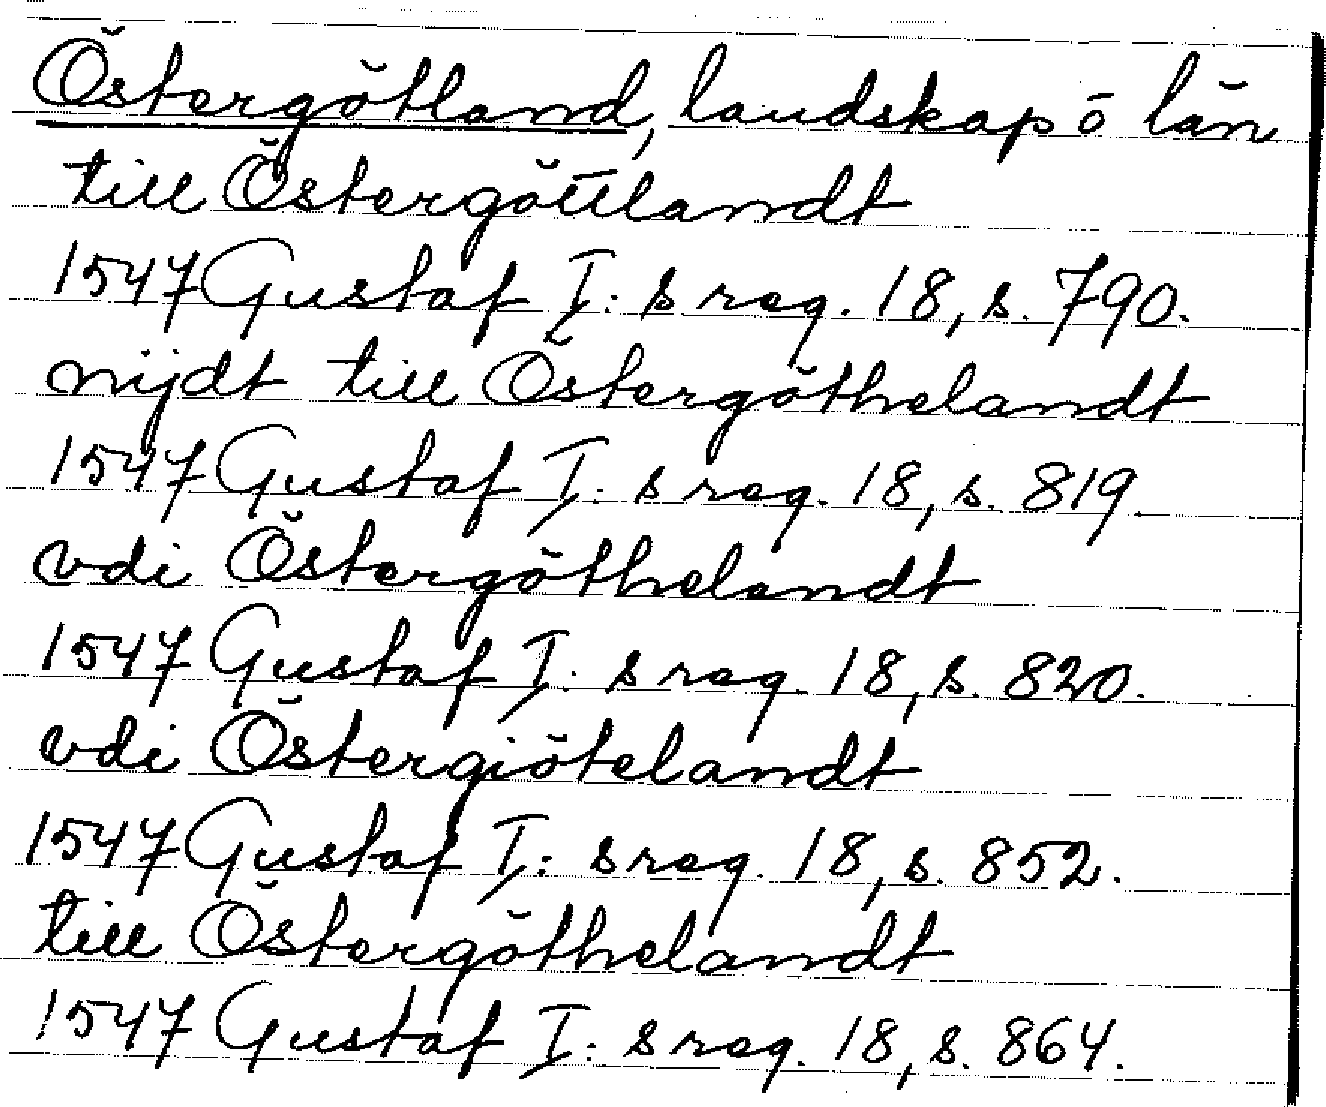 Östergötland, landskap o län
till Östergöttlandt
1547 Gustaf I:s reg. 18, s. 790.
nijdt till Östergöthelandt
1547 Gustaf I:s reg. 18, s. 819.
vdi Östergöthelandt
1547 Gustaf I:s reg. 18, s. 820.
vdi Östergiötelandt
1547 Gustaf I:s reg. 18, s. 852.
till Östergöthelandt
1547 Gustaf I:s reg. 18, s. 864.